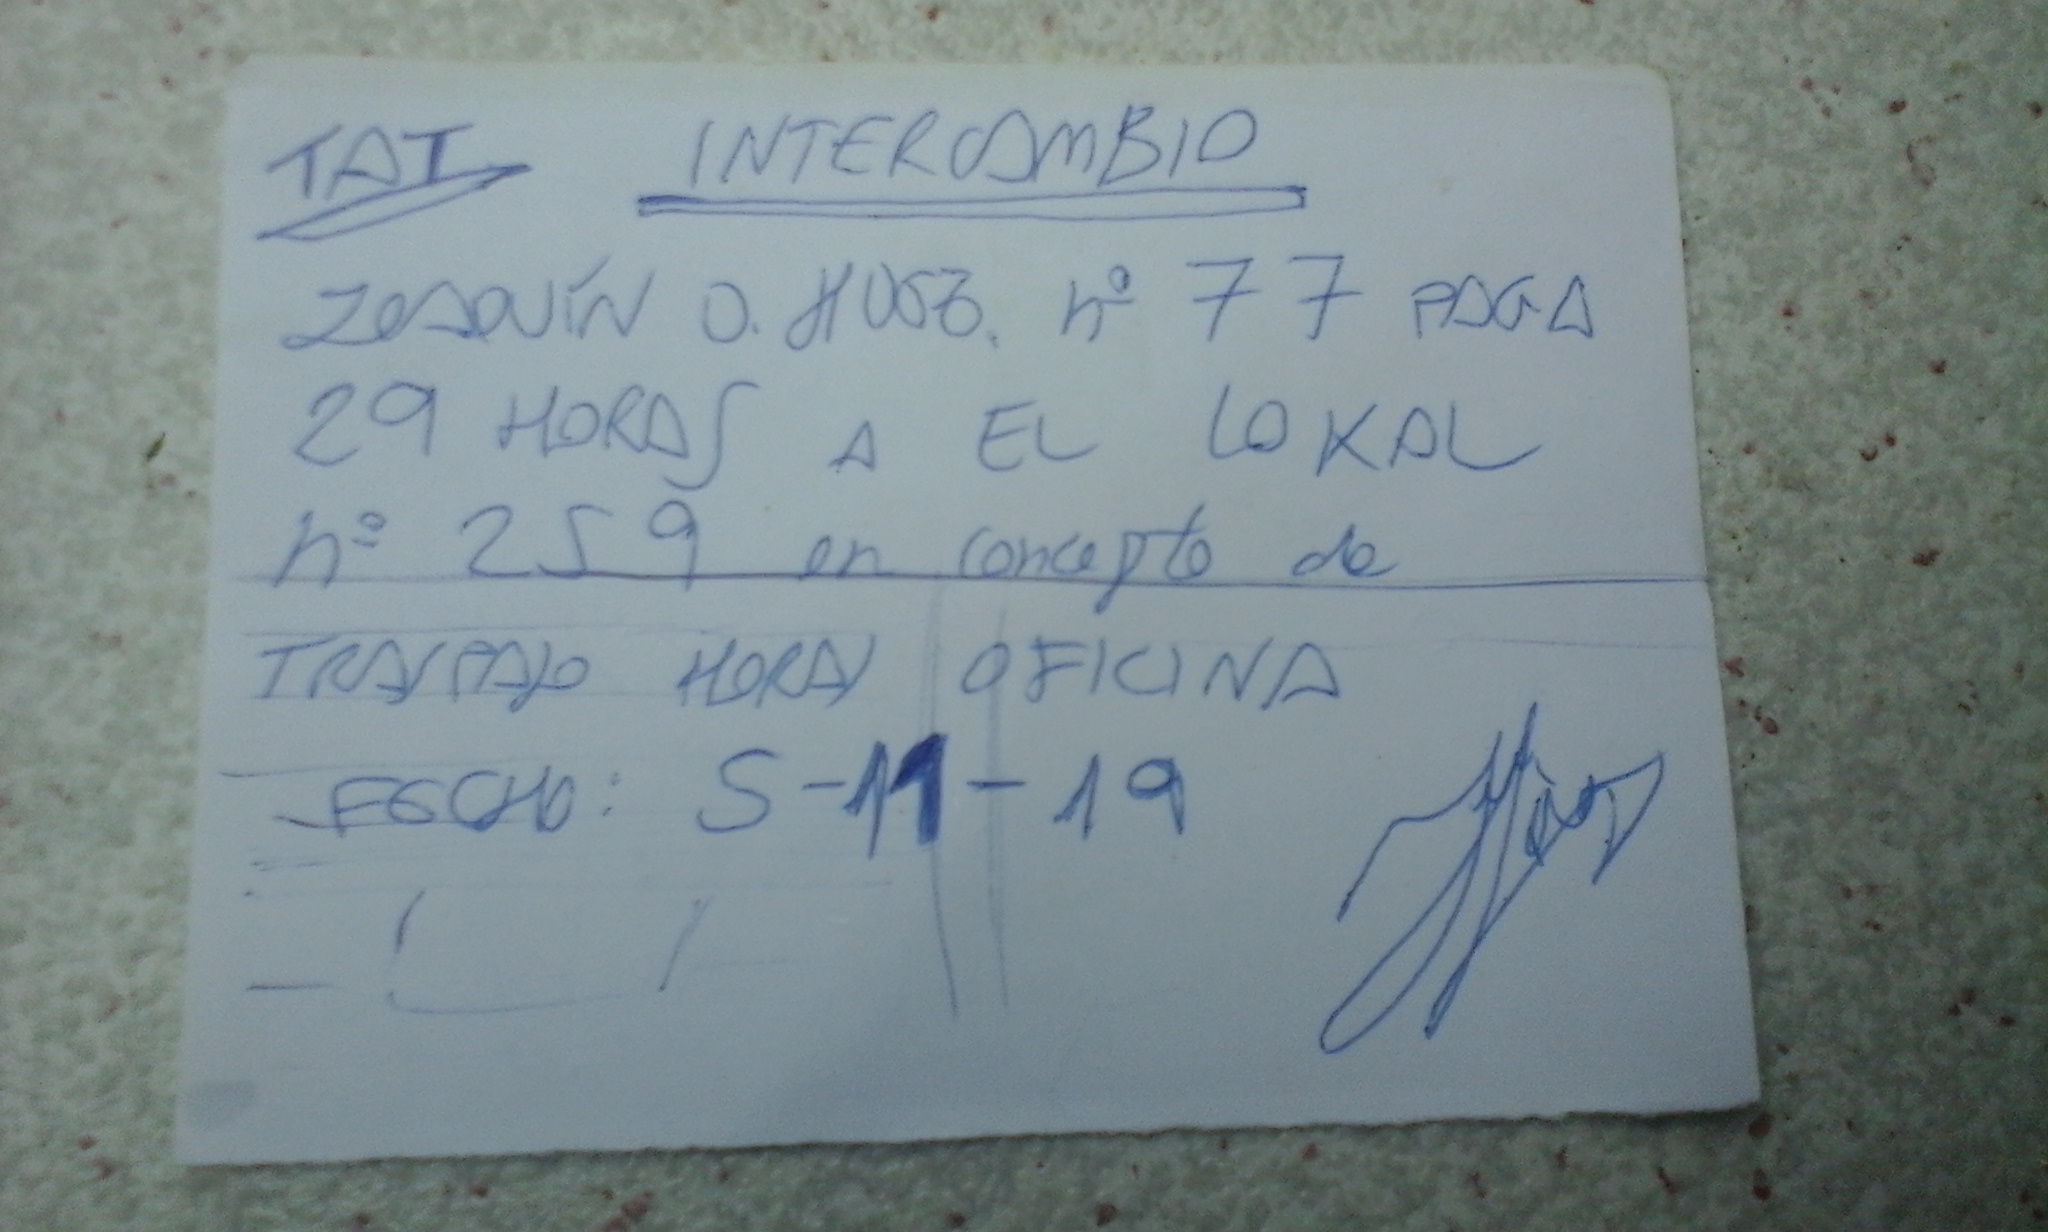 TAT INTERCAMBIO
JOAQUÍN O. nº 77 PAGA
29 HORAS A EL LOKAL
nº 259 en concepto de
TRASPASO HORAS OFICINA
FECHA: 5-11-19